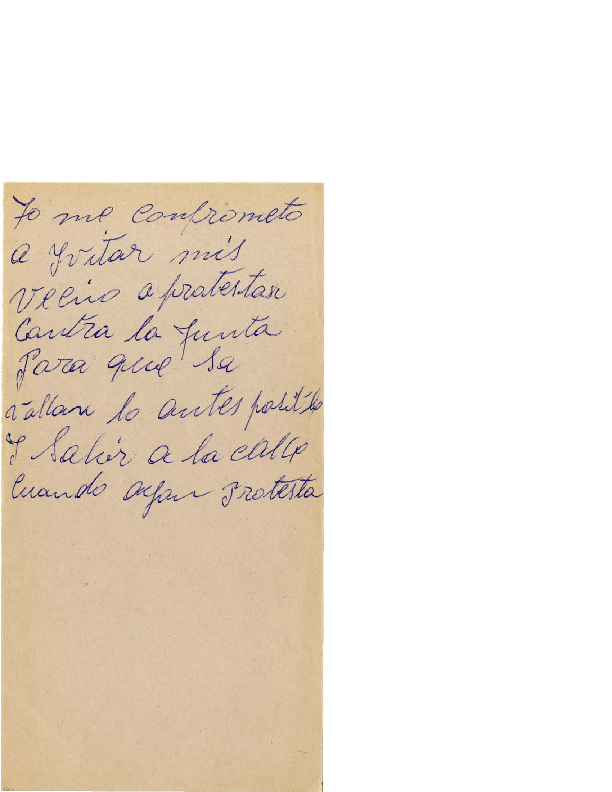 Yo me comprometo
a Yvitar mis
vecino a protestan
Contra la Junta
Para que sa
vallan lo antes posible
Y Salir a la calle
Cuando aygan Protesta